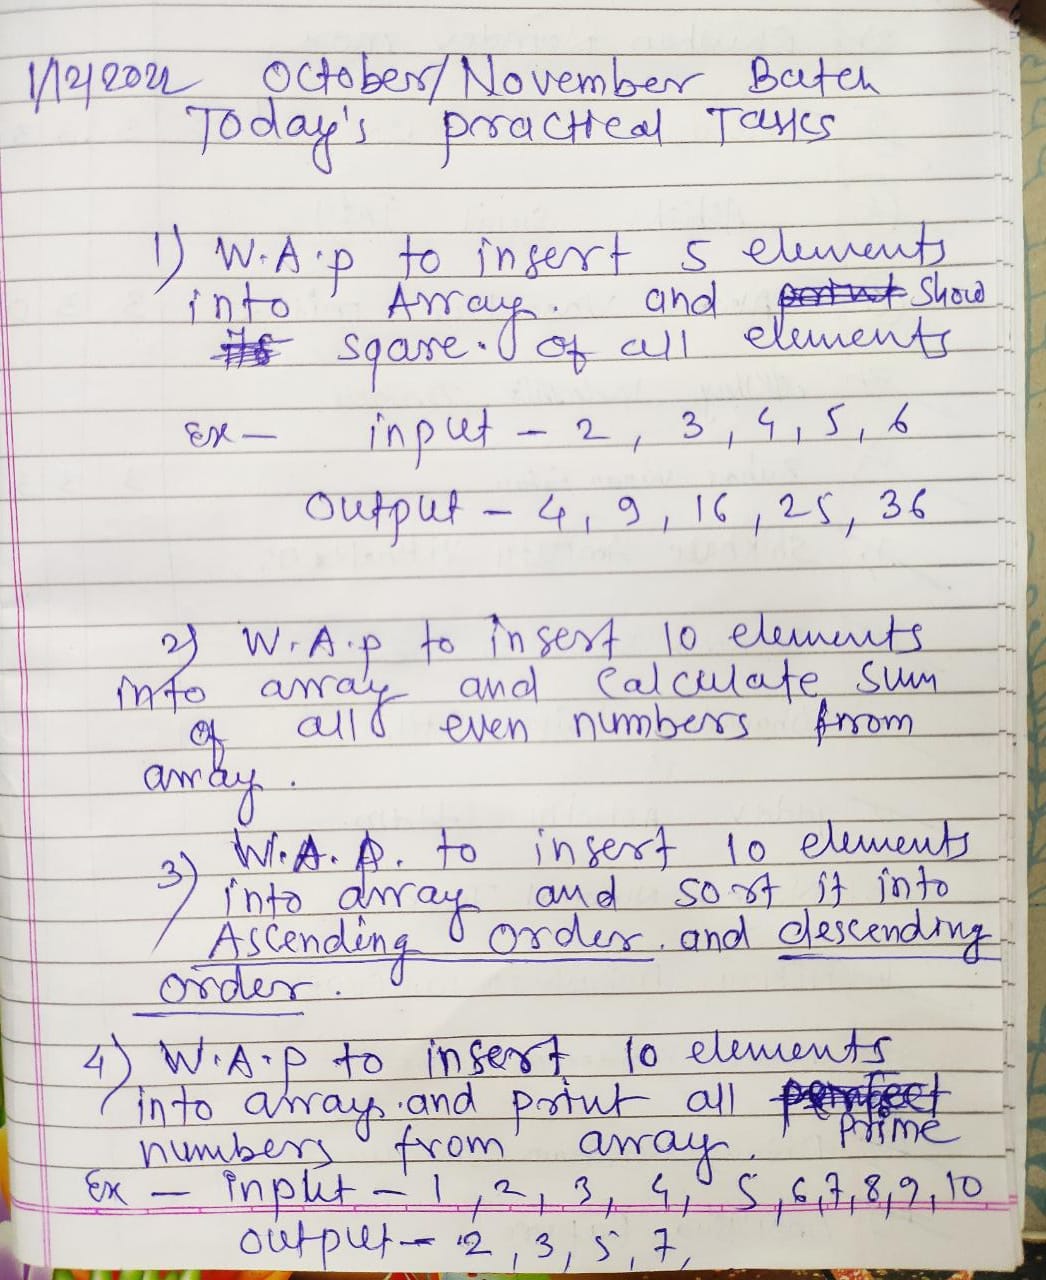 1/12/2022 October/November Batch
Today's practical Tasks
1) W.A.p to insert 5 elements
into Array. and print Show
its sqare. of all elements
Ex- input - 2, 3, 4, 5, 6
output - 4, 9, 16, 25, 36
2) W.A.p to insert 10 elements
into array and Calculate sum
of all even numbers from
array.
3) W.A.P. to insert 10 elements
into array and sort it into
Ascending order. and descending
order.
4) W.A.P to insert 10 elements
into array. and print all perfect
prime
numbers from array.
Ex - input - 1, 2, 3, 4, 5, 6, 7, 8, 9, 10
output - 2, 3, 5, 7,